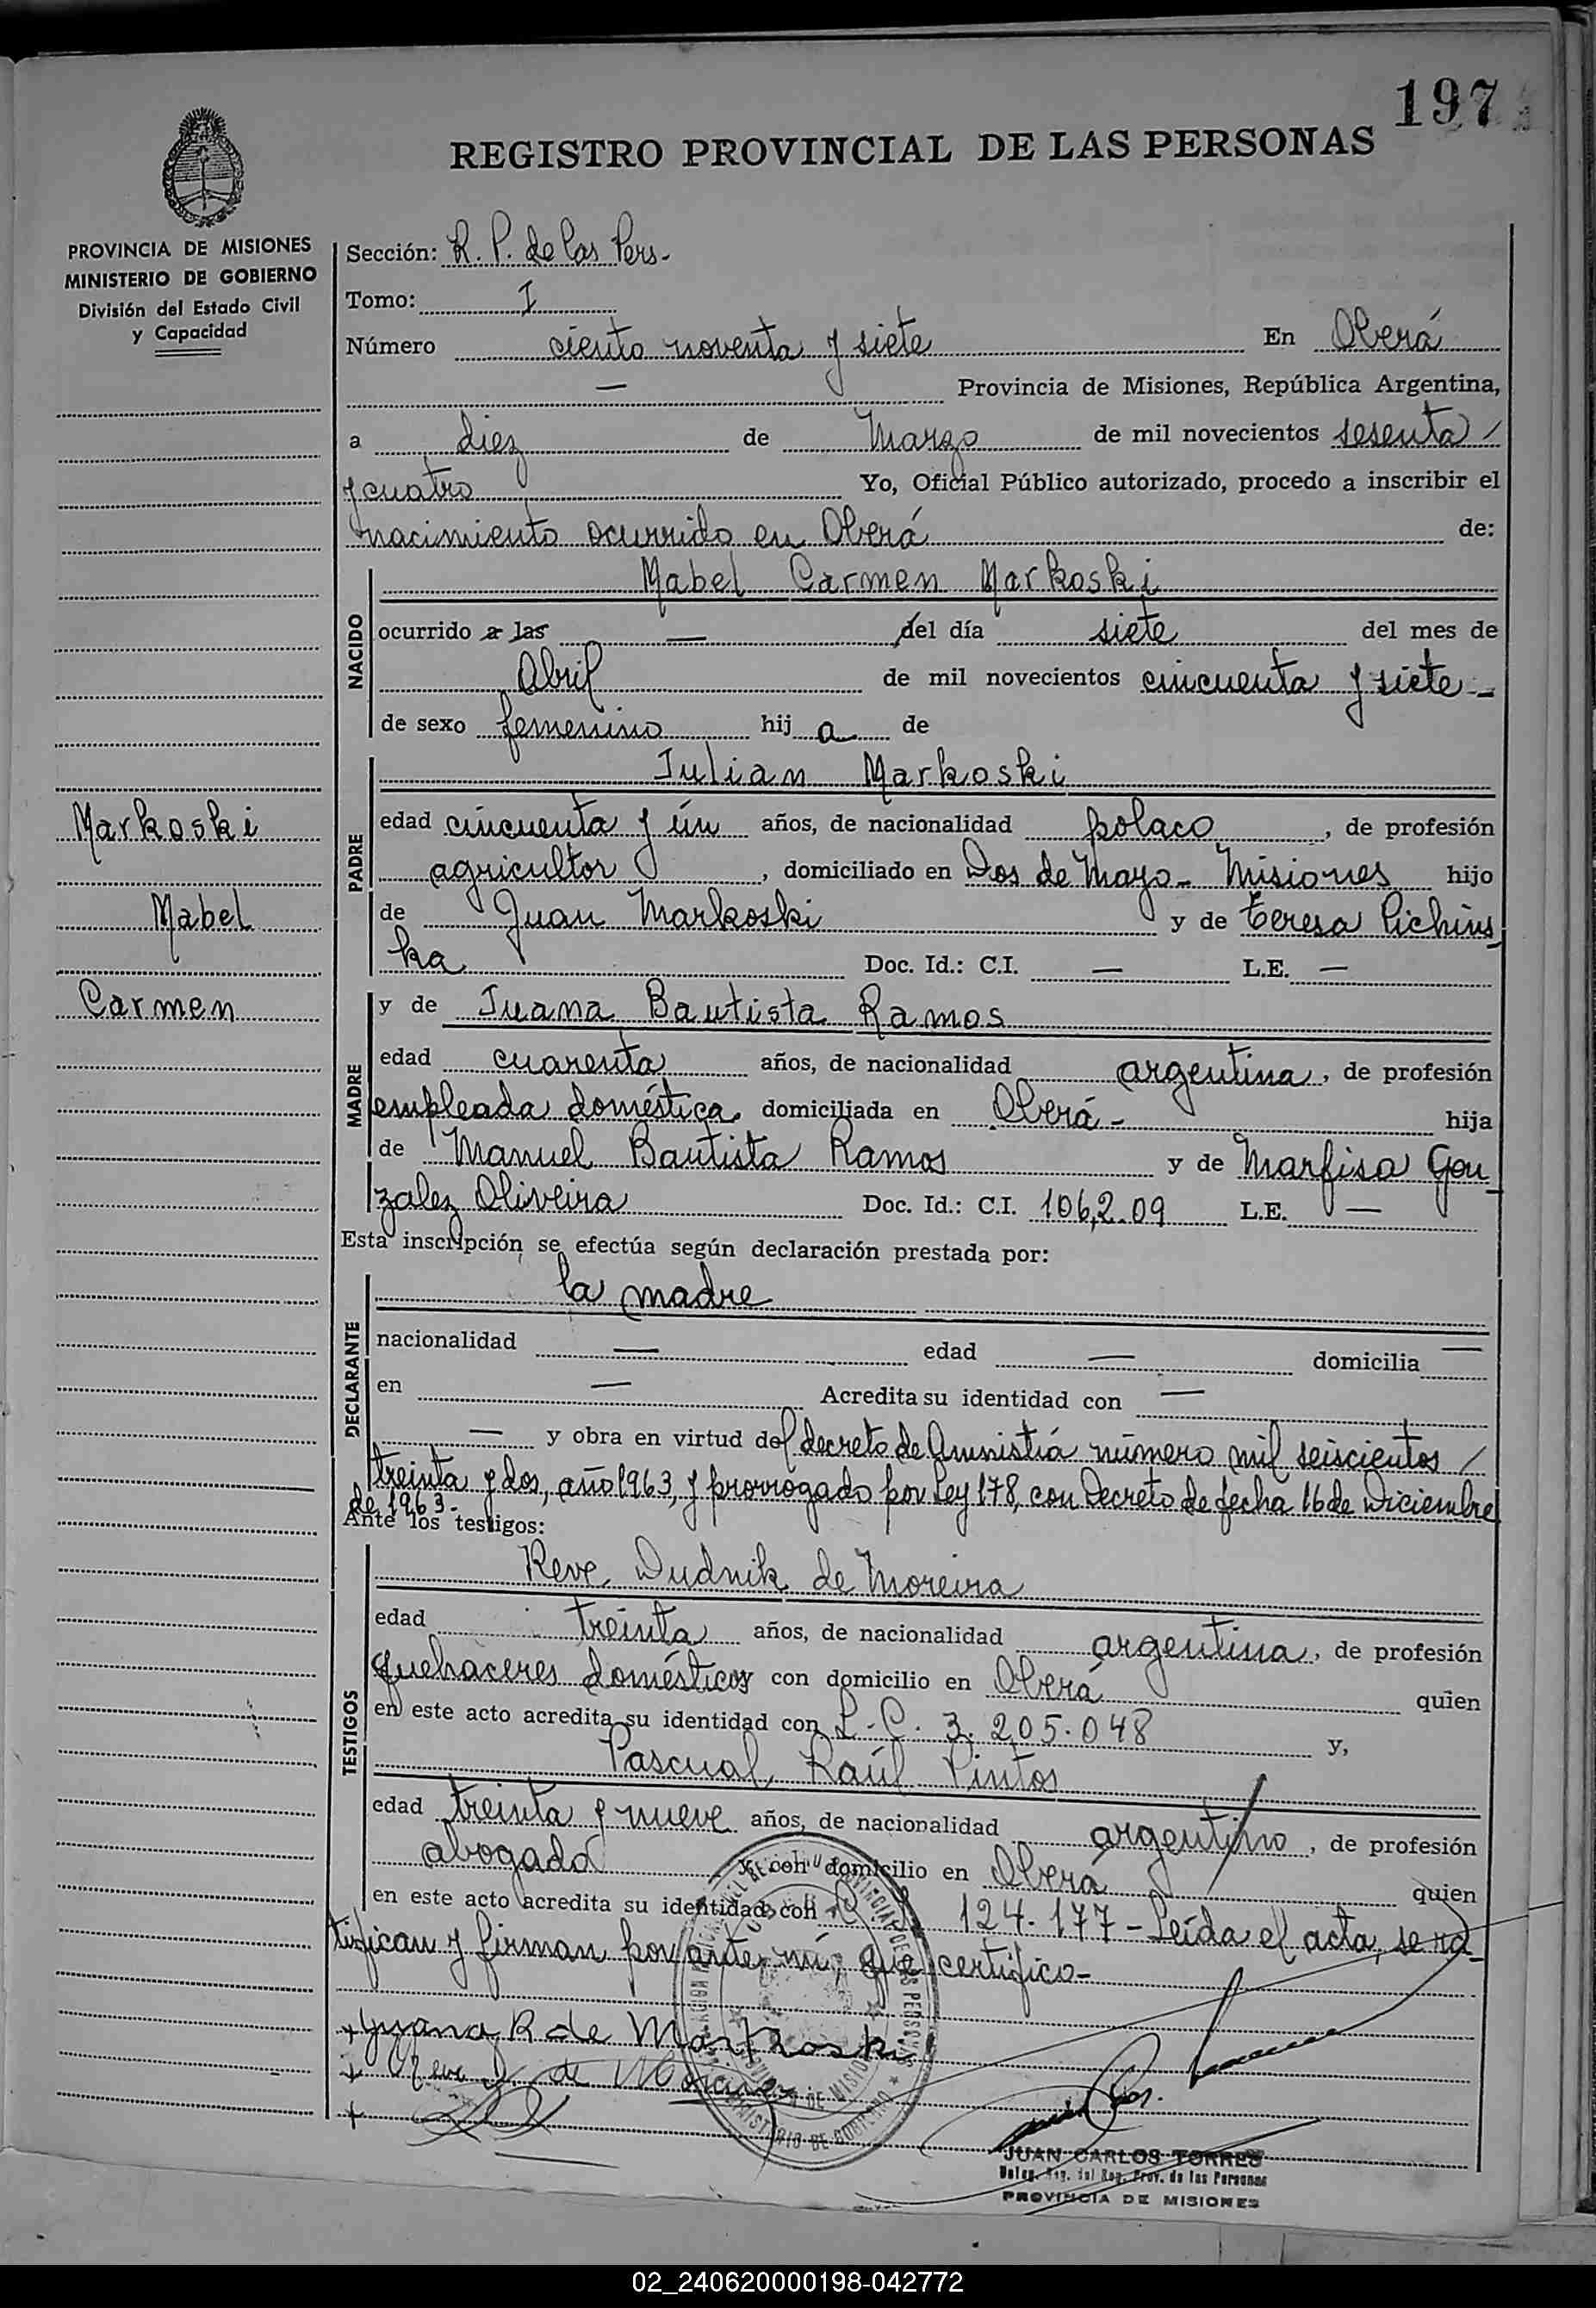 197
REGISTRO PROVINCIAL DE LAS PERSONAS
PROVINCIA DE MISIONES
MINISTERIO DE GOBIERNO
División del Estado Civil
y Capacidad
Sección: R. P. de las Pers.
Tomo: I
Número ciento noventa y siete En Oberá
— Provincia de Misiones, República Argentina,
a diez de Marzo de mil novecientos sesenta /
y cuatro Yo, Oficial Público autorizado, procedo a inscribir el
nacimiento ocurrido en Oberá de:
NACIDO
Mabel Carmen Markoski
ocurrido a las — del día siete del mes de
Abril de mil novecientos cincuenta y siete -
de sexo femenino hij a de
PADRE
Julian Markoski
Markoski
edad cincuenta y ún años, de nacionalidad polaco, de profesión
agricultor, domiciliado en Dos de Mayo - Misiones hijo
Mabel
de Juan Markoski y de Teresa Pichins
ka Doc. Id.: C.I. — L.E. —
Carmen
MADRE
y de Juana Bautista Ramos
edad cuarenta años, de nacionalidad argentina, de profesión
empleada doméstica, domiciliada en Oberá - hija
de Manuel Bautista Ramos y de Marfisa Gon
zalez Oliveira Doc. Id.: C.I. 106,2.09 L.E. —
Esta inscripción se efectúa según declaración prestada por:
DECLARANTE
la madre
nacionalidad — edad — domicilia —
en — Acredita su identidad con —
— y obra en virtud del decreto de Amnistía número mil seiscientos /
treinta y dos, año 1963, y prorrogado por Ley 178, con Decreto de fecha 16 de Diciembre
de 1963.-
Ante los testigos:
TESTIGOS
Reve Dudnik de Moreira
edad treinta años, de nacionalidad argentina, de profesión
quehaceres domésticos con domicilio en Oberá quien
en este acto acredita su identidad con L. C. 3.205.048 y,
Pascual Raúl Pintos
edad treinta y nueve años, de nacionalidad argentino, de profesión
abogado y con domicilio en Oberá quien
en este acto acredita su identidad con 124.177 - Leída el acta, se ra
tifican y firman por ante mí, que certifico -
+ Juana R de Markoski
+ Reve D de Moreira
+
JUAN CARLOS TORRES
Prov. de las Personas
PROVINCIA DE MISIONES
MINISTERIO DE GOBIERNO
02_240620000198-042772